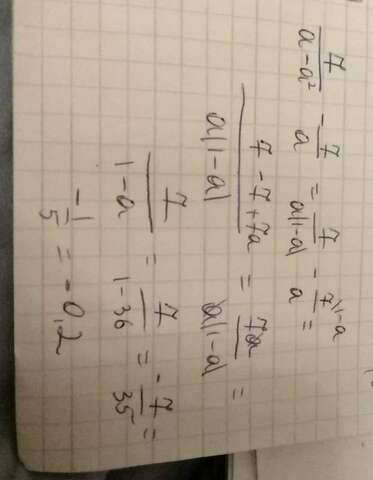 7/(a-a²) - 7/a = 7/(a(1-a)) - 7/a ^(1-a) =
(7-7+7a)/(a(1-a)) = 7a/(a(1-a)) =
7/(1-a) = 7/(1-36) = -7/35 =
-1/5 = -0,2